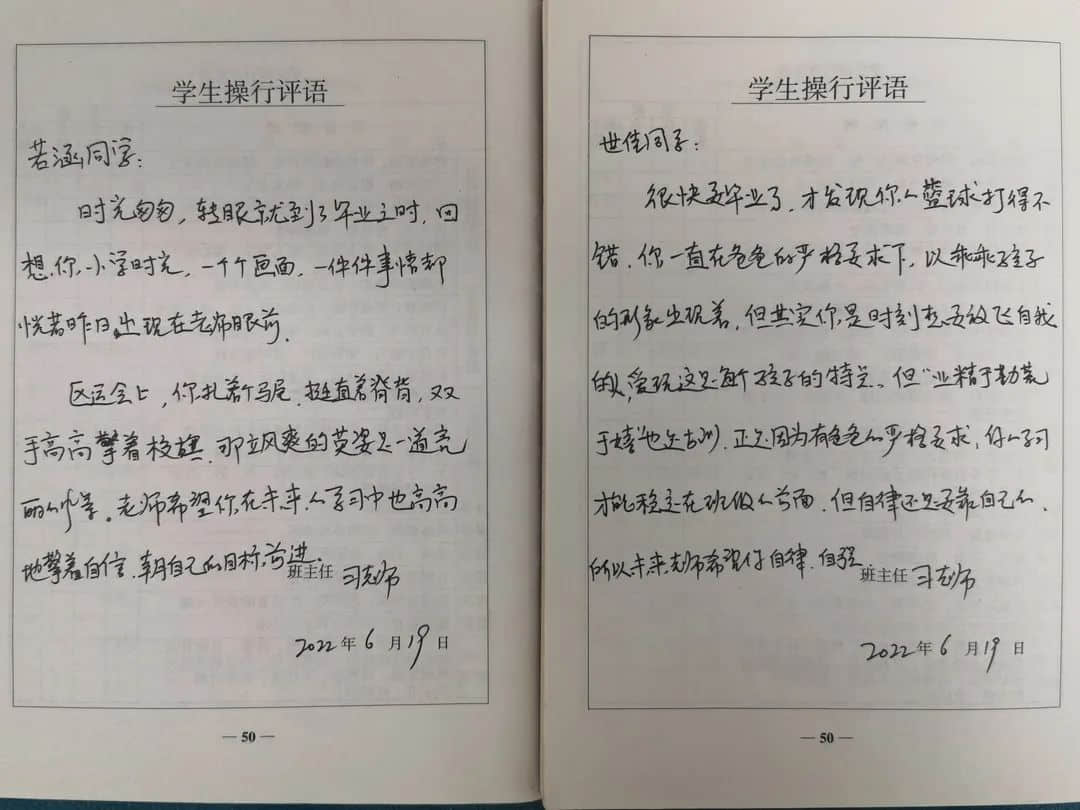 学生操行评语
若涵同学：
时光匆匆，转眼就到了毕业之时，回
想你小学时光，一个个画面，一件件事情都
恍若昨日出现在老师眼前。
区运会上，你扎着个马尾，挺直着脊背，双
手高高擎着校旗，那飒爽的英姿是一道亮
丽的风景。老师希望你在未来的学习中也高高
地擎着自信，朝自己的目标前进。
班主任 习老师
2022年6月19日
— 50 —
学生操行评语
世佳同学：
很快要毕业了，才发现你的篮球打得不
错，你一直在爸爸的严格要求下，以乖乖孩子
的形象出现着，但其实你是时刻想要放飞自我
的，爱玩这是每个孩子的特点。但“业精于勤荒
于嬉”也是古训，正是因为有爸爸的严格要求，你的学习
才能稳定在班级的前面，但自律还是要靠自己的，
所以未来老师希望你自律、自强。
班主任 习老师
2022年6月19日
— 50 —